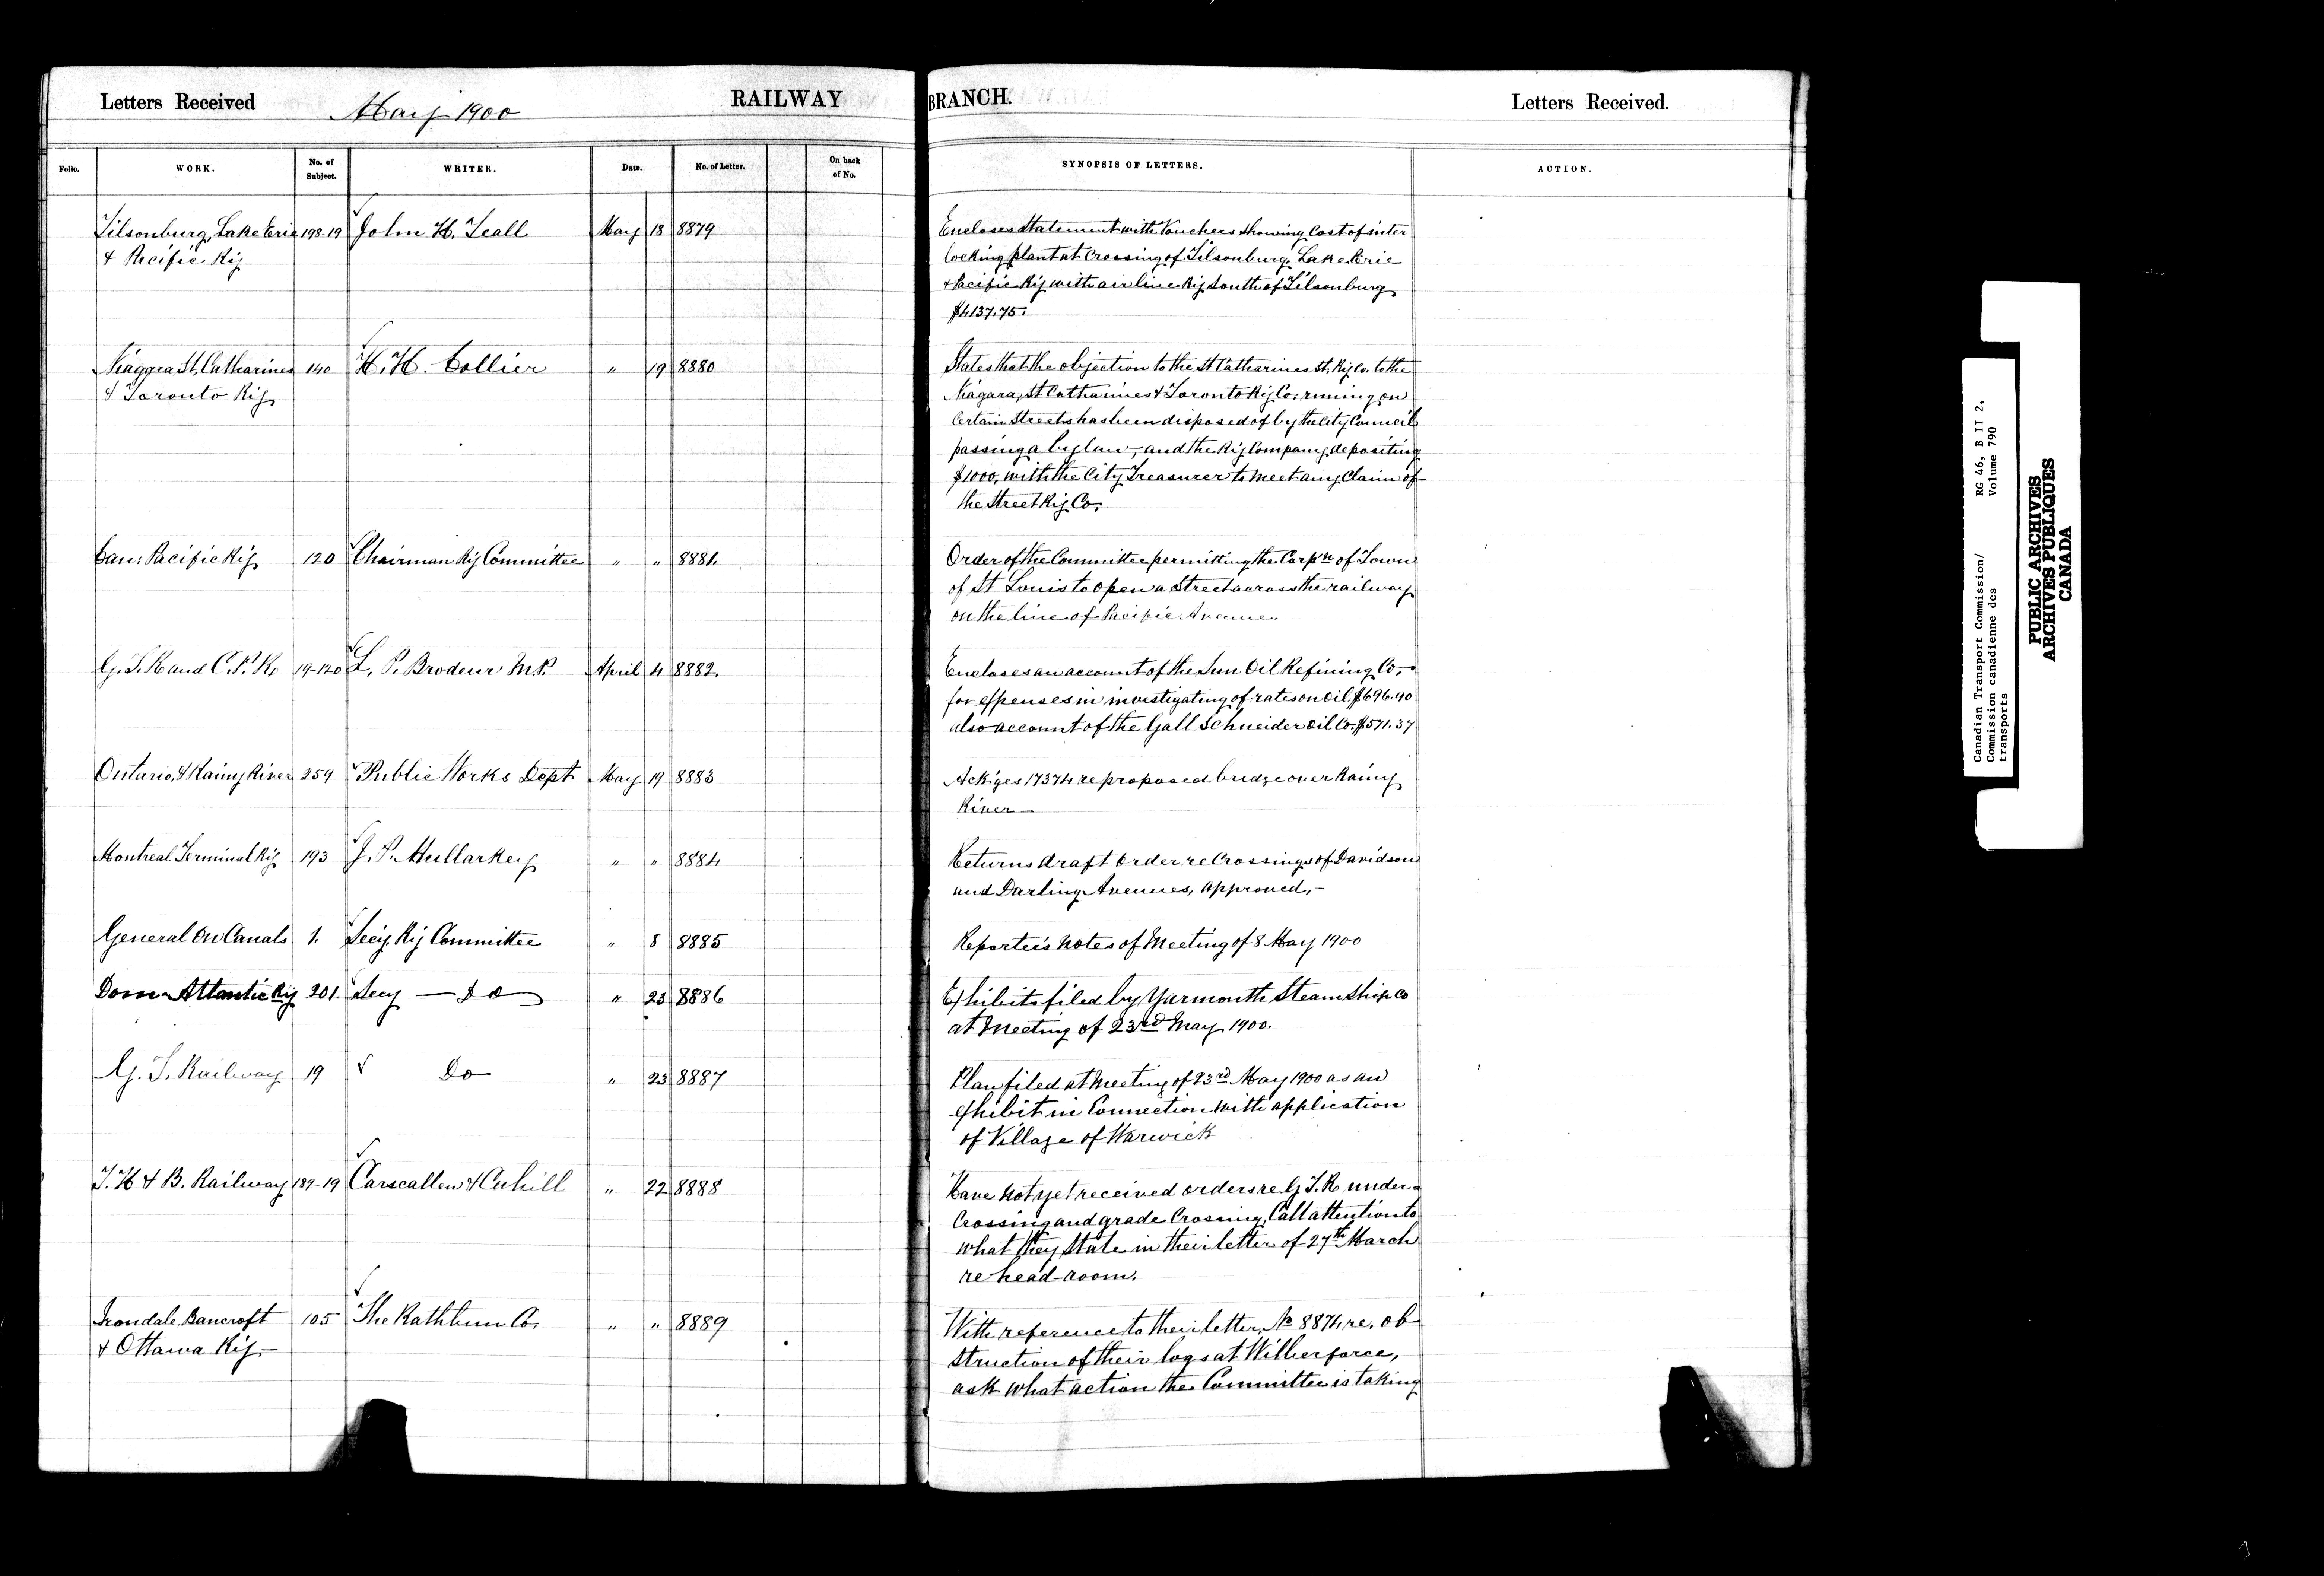 Letters Received May 1900 RAILWAY BRANCH. Letters Received.
Folio. WORK. No. of Subject. WRITER. Date. No. of Letter. On back of No. SYNOPSIS OF LETTERS. ACTION.
Tilsonburg, Lake Erie 198-19 John H. Teall May 18 8879 Encloses Statement with Vouchers showing Cost of inter
& Pacific Ry locking plant at Crossing of Tilsonburg, Lake Erie
& Pacific Ry with air line Ry South of Tilsonburg
$4137.75.
Niagara St. Catharines 140 H. H. Collier " 19 8880 States that the objection to the St Catharines St. Ry Co. to the
& Toronto Ry Niagara, St Catharines & Toronto Ry Co. running on
Certain Streets has been disposed of by the City Council
passing a by law, and the Ry Company depositing
$1000, with the City Treasurer to meet any Claim of
the Street Ry Co.
Can: Pacific Ry 120 Chairman Ry Committee " " 8881 Order of the Committee permitting the Corp'n of Town
of St Louis to open a Street across the railway
on the line of Pacific Avenue.
G. T. R and C. P. R. 19-120 L. P. Brodeur M.P. April 4 8882 Encloses an account of the Sun Oil Refining Co,
for expenses in investigating of rates on oil $696.40
also account of the Gall Schneider Oil Co. $571.37
Ontario & Rainy River 259 Public Works Dept May 19 8883 Ack'ges 17374 re proposed bridge over Rainy
River —
Montreal Terminal Ry 193 J. P. Mullarkey " " 8884 Returns draft Order re Crossings of Davidson
and Darling Avenues, approved, –
General On Canals 1. Secy. Ry Committee " 8 8885 Reporter's Notes of Meeting of 8 May 1900
Dom Atlantic Ry 201. Secy — do " 23 8886 Exhibits filed by Yarmouth Steam Ship Co
at Meeting of 23rd May 1900.
G. T. Railway 19 Do " 23 8887 Plan filed at Meeting of 23rd May 1900 as an
exhibit in Connection with application
of Village of Warwick
T. H & B. Railway 189-19 Carscallen & Cahill " 22 8888 Have not yet received orders re G T. R under
Crossing and grade Crossing, Call attention to
what they State in their letter of 27th March
re head-room.
Irondale, Bancroft 105 The Rathbun Co. " " 8889 With reference to their letter, No 8874 re. ob
& Ottawa Ry. – struction of their logs at Wilberforce,
ask what action the Committee is taking
Canadian Transport Commission/ RG 46, B II 2,
Commission canadienne des Volume 790
transports
PUBLIC ARCHIVES
ARCHIVES PUBLIQUES
CANADA